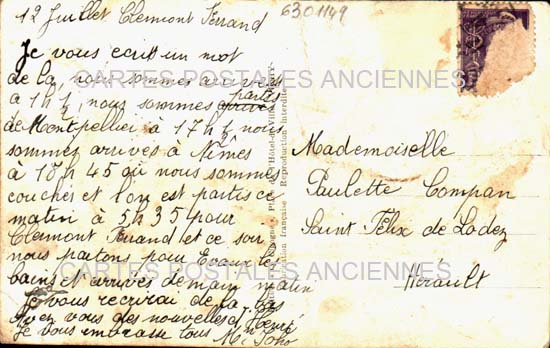 12 Juillet Clermont Ferrand
6301149
Je vous ecrit un mot
de la nous sommes arrives
CARTES POSTALES ANCIENNES
à 1 h ½, nous sommes arrivés partis
de Montpellier à 17 h ½ nous
sommes arrivés à Nîmes
à 18 h 45 où nous sommes
coucher et l'on est partis ce
matin à 5 h 35 pour
Clermont Ferrand et ce soir
nous partons pour Evaux les
CARTES POSTALES ANCIENNES
bains et arrivés demain matin
Je vous recrirai de la bas
Avez vous des nouvelles d'Henri
Je vous embrasse tous
Mademoiselle
Paulette Compan
Saint Félix de Lodez
Hérault
Reproduction interdite